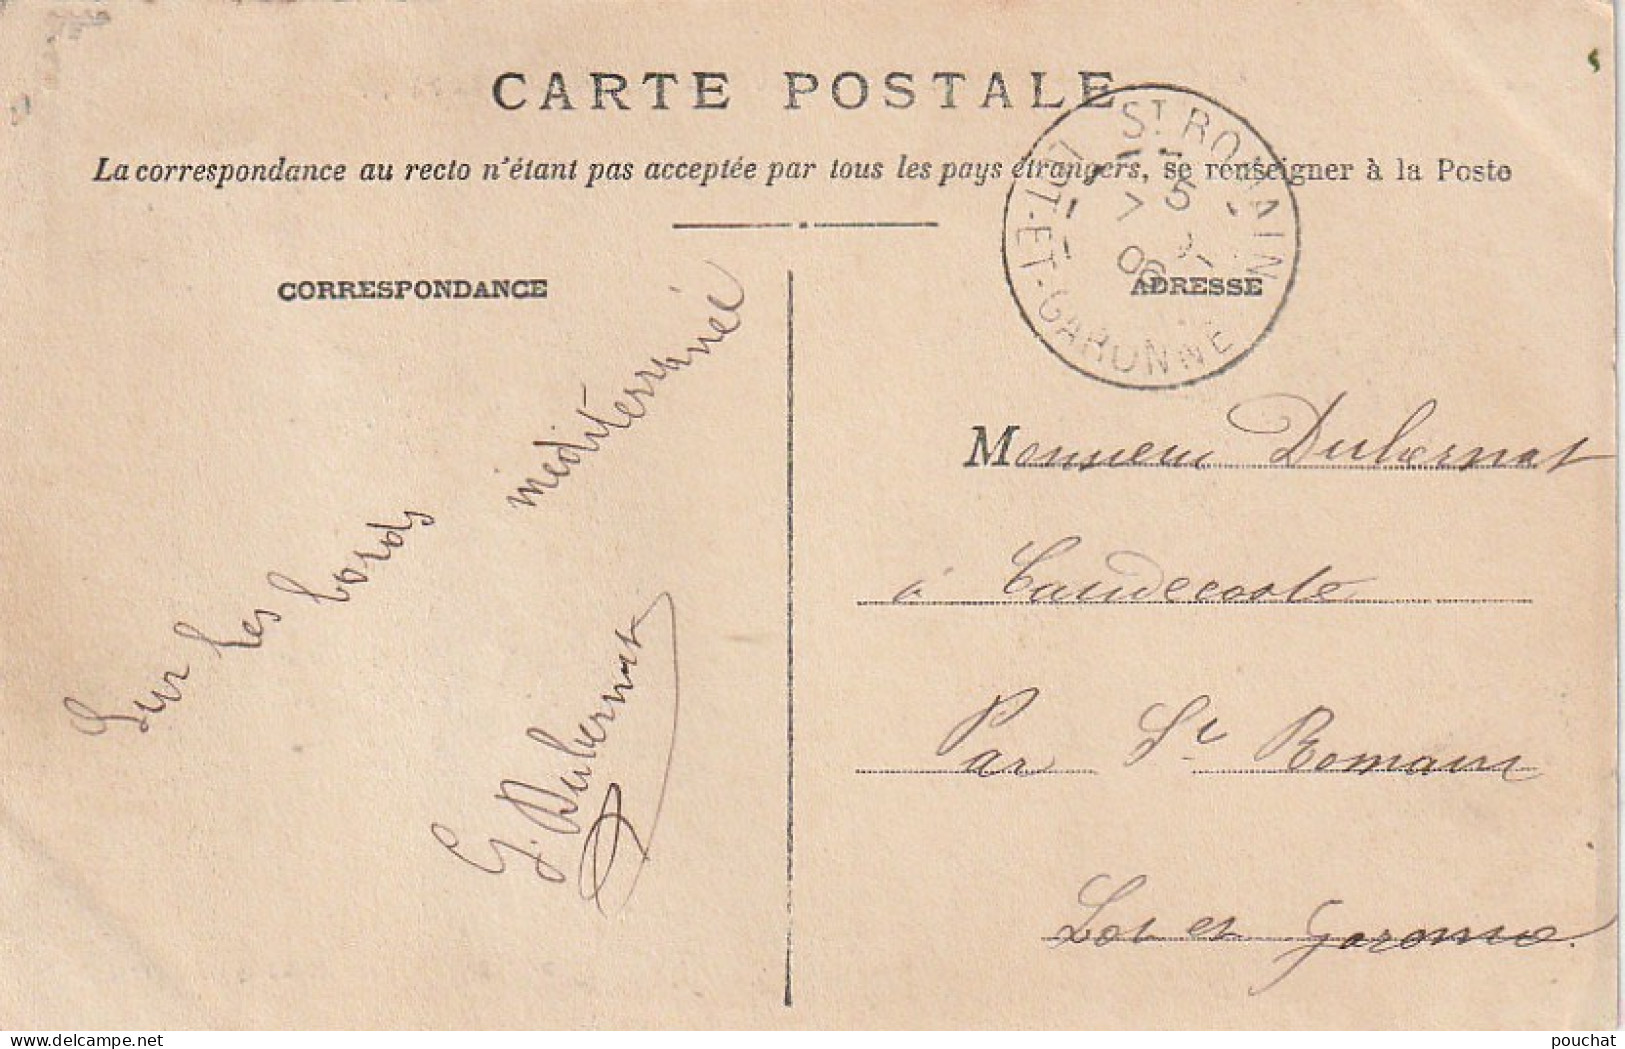 CARTE POSTALE
La correspondance au recto n'étant pas acceptée par tous les pays étrangers, se renseigner à la Poste
ST ROMAIN
5
7
06
LOT-ET-GARONNE
CORRESPONDANCE
Sur les bords
mediterranée
G. Dubernat
ADRESSE
Monsieur Dubernat
à Caudecoste
Par St Romain
Lot et Garonne.
www.delcampe.net
pouchat